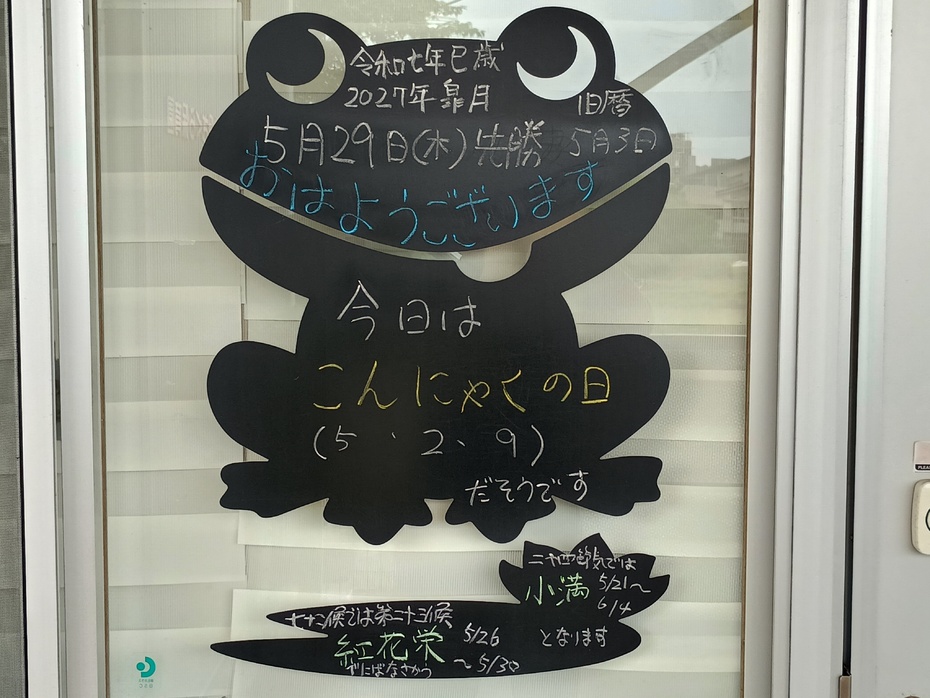 令和七年巳歳
2027年皐月 旧暦
5月29日(木)先勝 5月3日
おはようございます
今日は
こんにゃくの日
(5、2、9)
だそうです
二十四節気では
小満 5/21〜
6/4
となります
七十二候では第二十三候
紅花栄 5/26
べにばなさかう 〜5/30